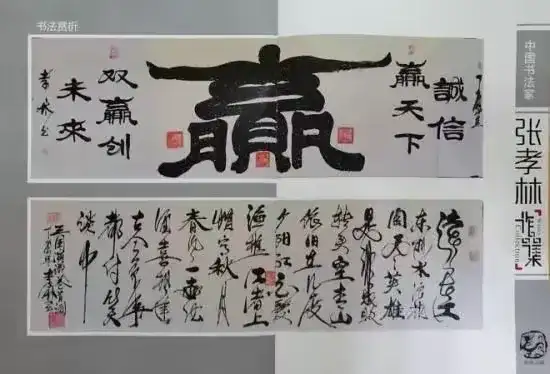 书法赏析
誠信
贏天下
贏
双赢创
未來
孝林书
滚滚长江
东逝水浪花
淘尽英雄
是非成败
转头空青山
依旧在几度
夕阳红白发
渔樵江渚上
惯看秋月
春风一壶浊
酒喜相逢
古今多少事
都付笑
谈中
中国书法家
张孝林
作品集